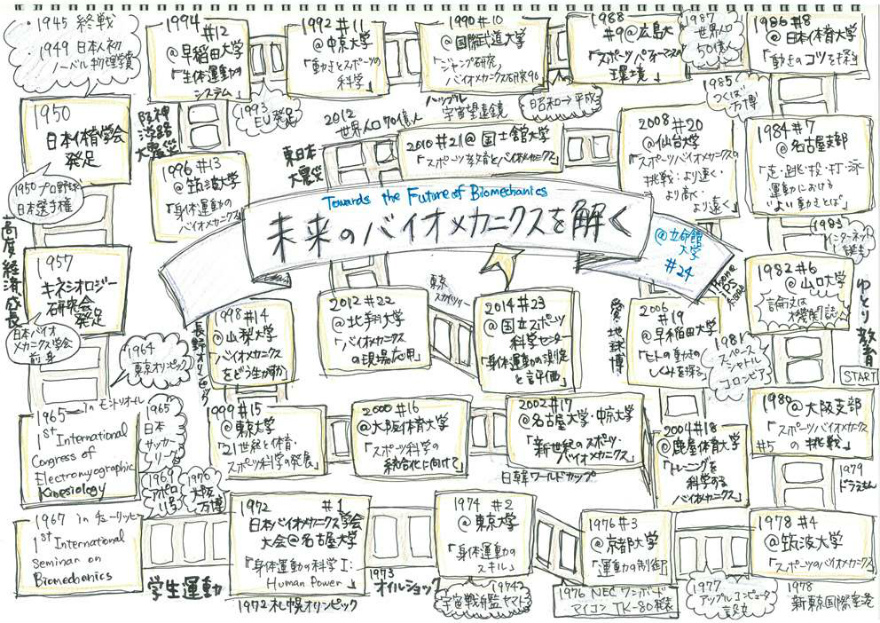 1945 終戦
1949 日本人初
ノーベル物理学賞
1950
日本体育学会
発足
1950 プロ野球
日本選手権
高度経済成長
1957
キネシオロジー
研究会
発足
日本バイオ
メカニクス学会
前身
1964
東京オリンピック
1965 in モントリオール
1st International
Congress of
Electromyographic
Kinesiology
1965
日本
サッカー
リーグ
1967 in チューリッヒ
1st International
Seminar on
Biomechanics
1969
アポロ
11号
1970
大阪
万博
学生運動
1972 #1
日本バイオメカニクス学会
大会@名古屋大学
「身体運動の科学Ⅰ:
Human Power」
1972 札幌オリンピック
1973
オイルショック
1974 #2
@東京大学
「身体運動の
スキル」
宇宙戦艦ヤマト
1976 #3
@京都大学
「運動の制御」
1976 NEC ワンボード
マイコン TK-80発表
1977
アップルコンピュータ
1978 #4
@筑波大学
「スポーツのバイオメカニクス」
1978
新東京国際空港
1979
ドラえもん
START
1980 @大阪支部
「スポーツバイオメカニクス
#5 の挑戦」
1981
スペース
シャトル
コロンビア
ゆとり教育
1982 #6
@山口大学
論文は
機関誌
1983
インターネット
1984 #7
@名古屋支部
「走・跳・投・打・泳
運動における
"よい動きとは"」
1985
つくば万博
1986 #8
@日本体育大学
「動きのコツを探る」
1987
世界人口
50億人
1988
#9 @広島大
「スポーツパフォーマンスの
環境」
昭和→平成
1990 #10
@国際武道大学
「ジャンプ研究,
バイオメカニクス研究90」
ハッブル
宇宙望遠鏡
1992 #11
@中京大学
「動きとスポーツの
科学」
1993
EU発足
1994
#12
@早稲田大学
「生体運動の
システム」
阪神
淡路
大震災
1996 #13
@筑波大学
「身体運動の
バイオメカニクス」
長野オリンピック
1998 #14
@山梨大学
「バイオメカニクス
をどう生かすか」
1999 #15
@東京大学
「21世紀と体育・
スポーツ科学の発展」
2000 #16
@大阪体育大学
「スポーツ科学の
統合化に向けて」
2002 #17
@名古屋大学・中京大学
「新世紀のスポーツ・
バイオメカニクス」
日韓ワールドカップ
2004 #18
@鹿屋体育大学
「トレーニングを
科学する
バイオメカニクス」
愛・地球博
2006
#19
@早稲田大学
「ヒトの動きの
しくみを探る」
2008 #20
@仙台大学
「スポーツバイオメカニクスの
挑戦:より速く・
より高く・
より遠く」
2010 #21@国士舘大学
「スポーツ教育とバイオメカニクス」
東日本
大震災
2012
世界人口70億人
2012 #22
@北翔大学
「バイオメカニクス
の現場応用」
東京
スカイツリー
2014 #23
@国立スポーツ
科学センター
「身体運動の測定
と評価」
Towards the Future of Biomechanics
未来のバイオメカニクスを解く
@立命館
大学
#24